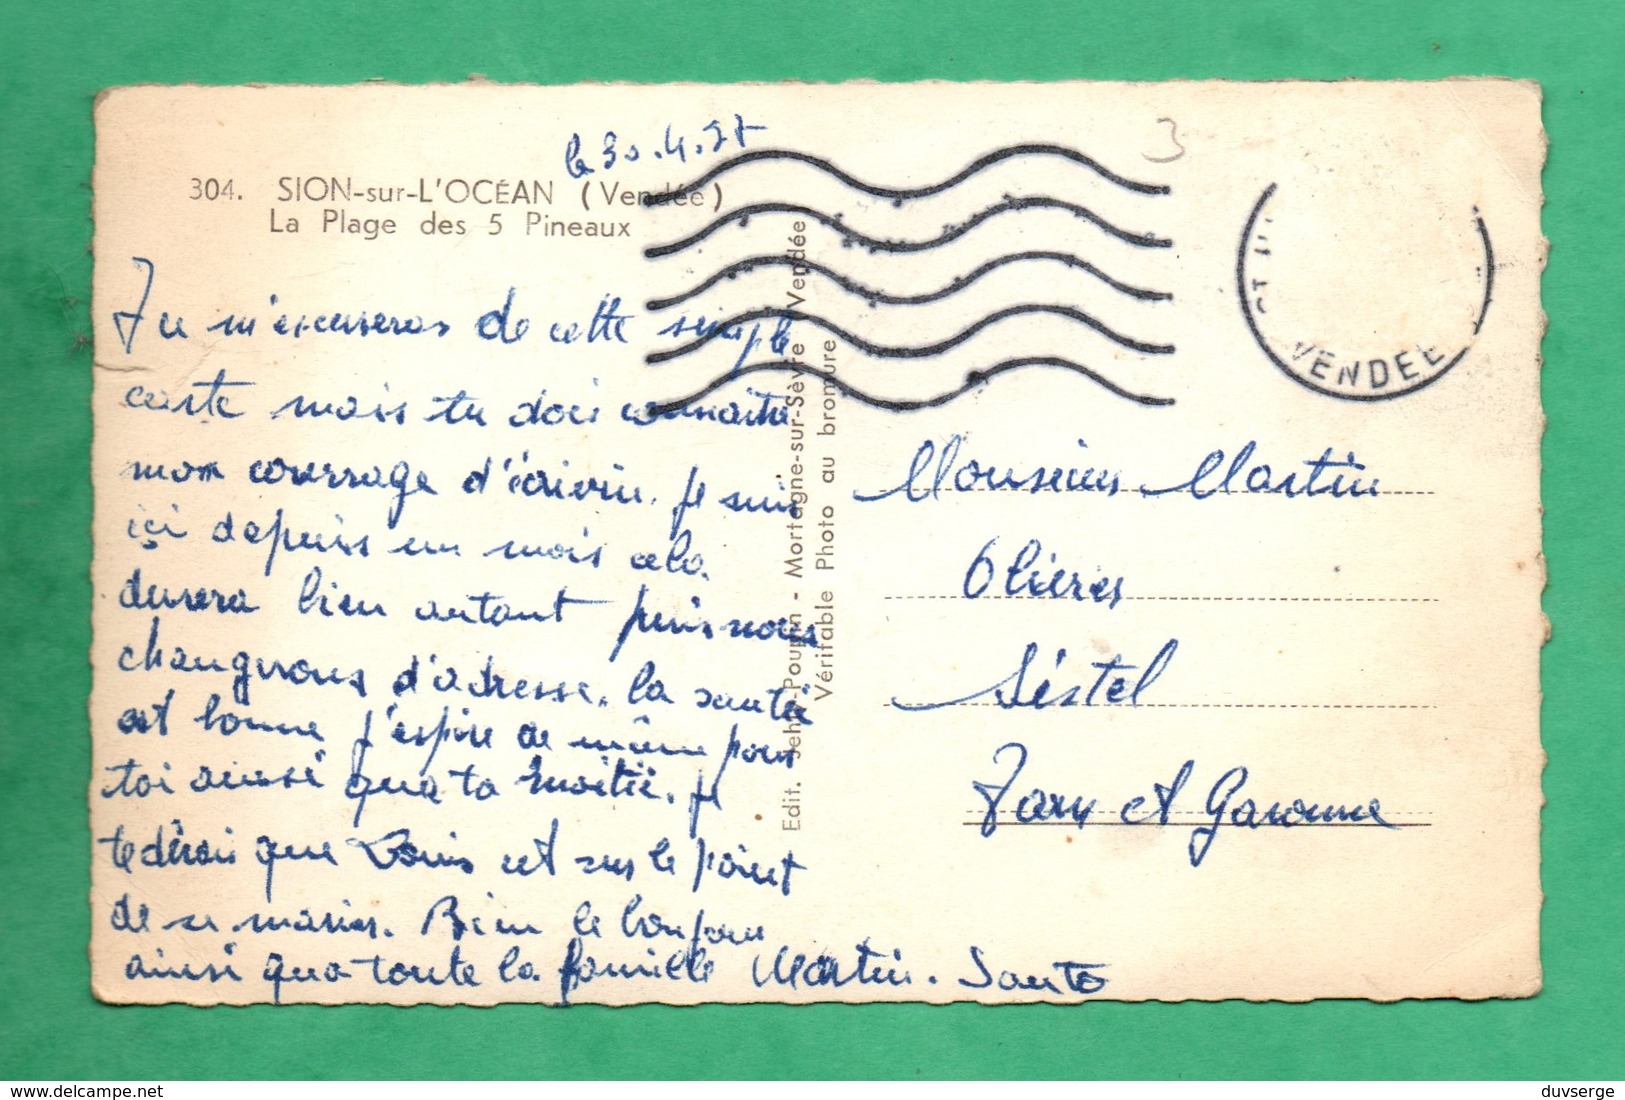 le 30.4.57
3
304. SION-sur-L'OCÉAN (Vendée)
La Plage des 5 Pineaux
Tu m'excuseras de cette simple
carte mais tu dois connaitre
mon courrage d'écrivin. Je suis
ici depuis un mois cela
durera bien autant puis nous
changerons d'adresse. la santée
est bonne j'espère de même pour
toi ainsi qua ta moitié. Je
te dirai que Louis est sur le point
de se marier. Bien le bonjour
ainsi qua toute la famille Martin.
Edit. Jehly-Poupin - Mortagne-sur-Sèvre Vendée
Véritable Photo au bromure
VENDEE
Monsieur Martin
Olières
Séstel
Tarn et Garonne
delcampe.net
duvserge